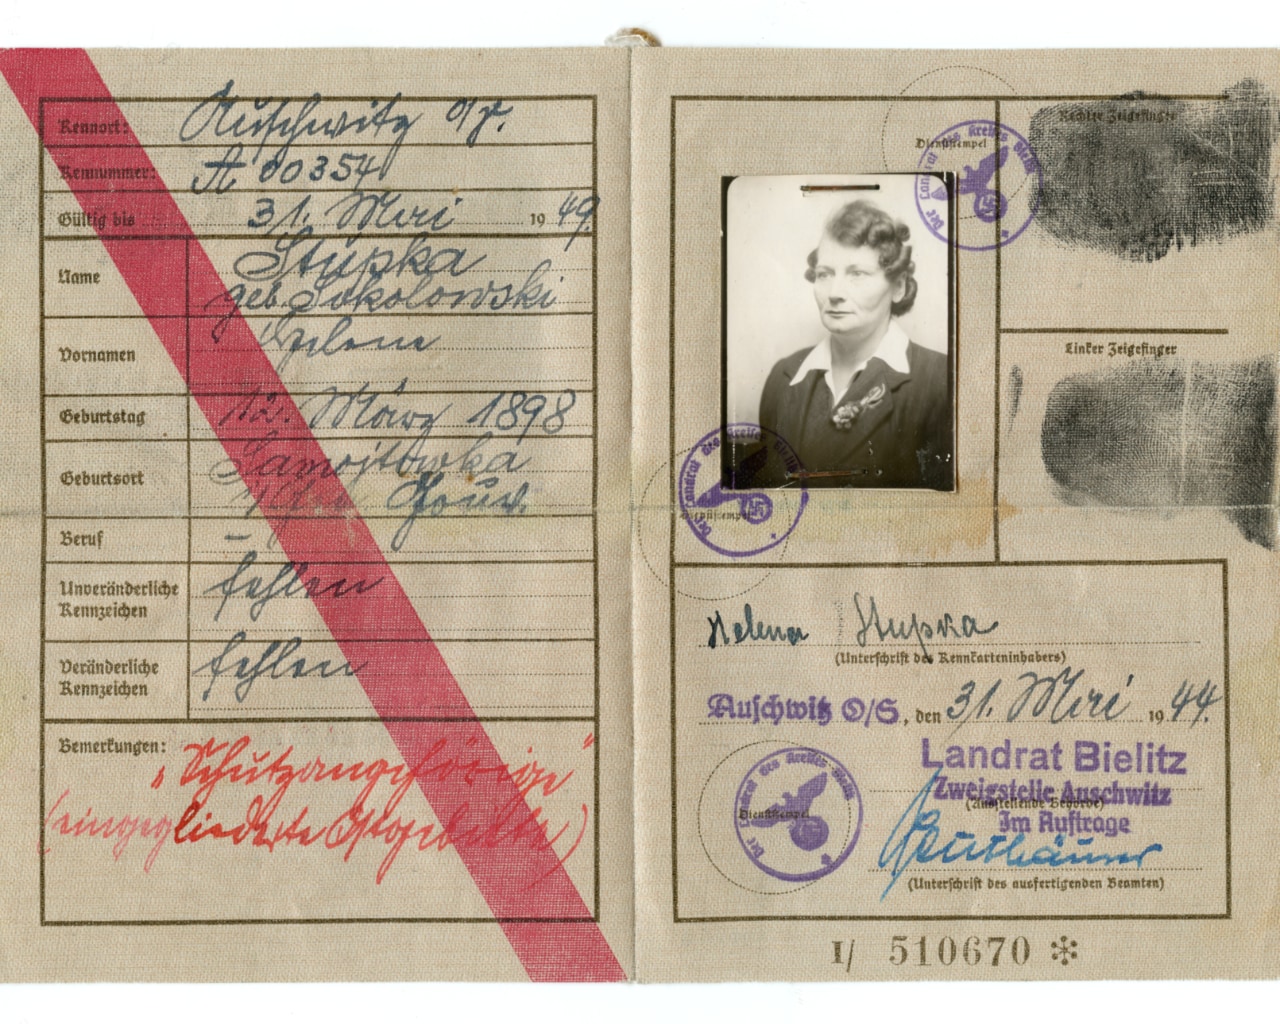 Kennort: Auschwitz O/S.
Kennummer: A 00354
Gültig bis 31. Mai 1949.
Name Stupka
geb. Sokolowski
Vornamen Helene
Geburtstag 12. März 1898
Geburtsort
Gouv.
Beruf –
Unveränderliche Kennzeichen fehlen
Veränderliche Kennzeichen fehlen
Bemerkungen: „Schutzangehörige"
(eingegliederte Ostgebiete)
Dienststempel
Der Landrat des Kreises Bielitz
Rechter Zeigefinger
Linker Zeigefinger
Dienststempel
Der Landrat des Kreises Bielitz
Helena Stupka
(Unterschrift des Kennkarteninhabers)
Auschwitz O/S, den 31. Mai 1944.
Landrat Bielitz
Zweigstelle Auschwitz
(Ausstellende Behörde)
Im Auftrage
Dienststempel
Der Landrat des Kreises Bielitz
(Unterschrift des ausfertigenden Beamten)
I/ 510670 ✻